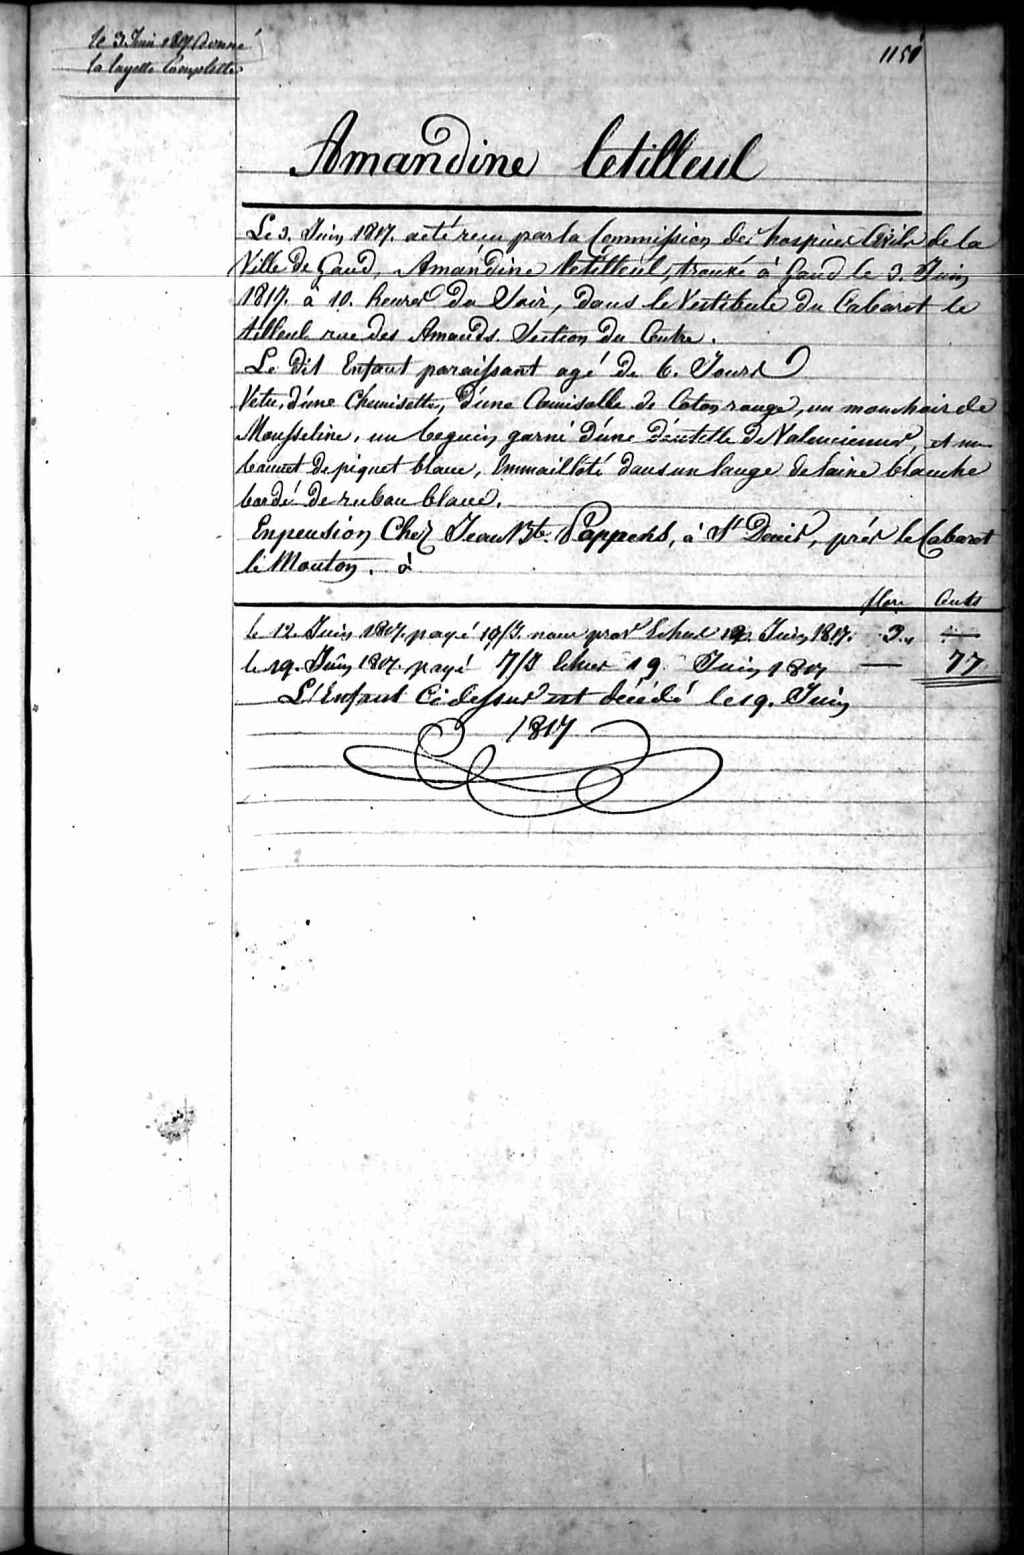 le 3 Juin 1817 Donné
la layette Complette
1150
Amandine letilleul
Le 3. Juin 1817. a été recu par la Commission des hospices Civils de la
Ville de Gand, Amandine letilleul, trouvé à Gand le 3. Juin
1817. a 10. heures du Soir, dans le Vestibule du Cabaret le
tilleul rue des Amands. Section du Centre.
Le dit Enfant paraissant agé de 6. Jours
Vetu, d'une Chémisette, d'une Camisolle de Coton rouge, un mouchoir de
Mousseline, un beguin garné d'une Déntelle de Valenciennes, et un
bonnet de piquet blanc, Emmailloté dans un lange de laine blanche
bordé de ruban blanc.
En pension Chez Jean Bte. Pappens, à St Denis, prés le Cabaret
le Mouton. à
flor. Cents
le 12. Juin 1817. payé 19/J. nour prov Echus 12. Juin 1817. 3. „ —
le 19. Juin 1817. payé 7/J Echus 19. Juin 1817 — 77
L'Enfant Ci dessus est décédé le 19. Juin
1817